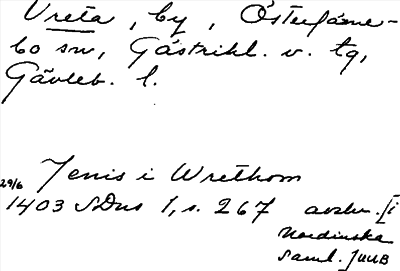 Vreta, by, Österfärne-
bo sn, Gästrikl. v. tg,
Gävleb. l.
Jenis i Wrethom
29/6
1403 SDns 1, s. 267 avskr. [i
Nordinska
saml. ]UUB